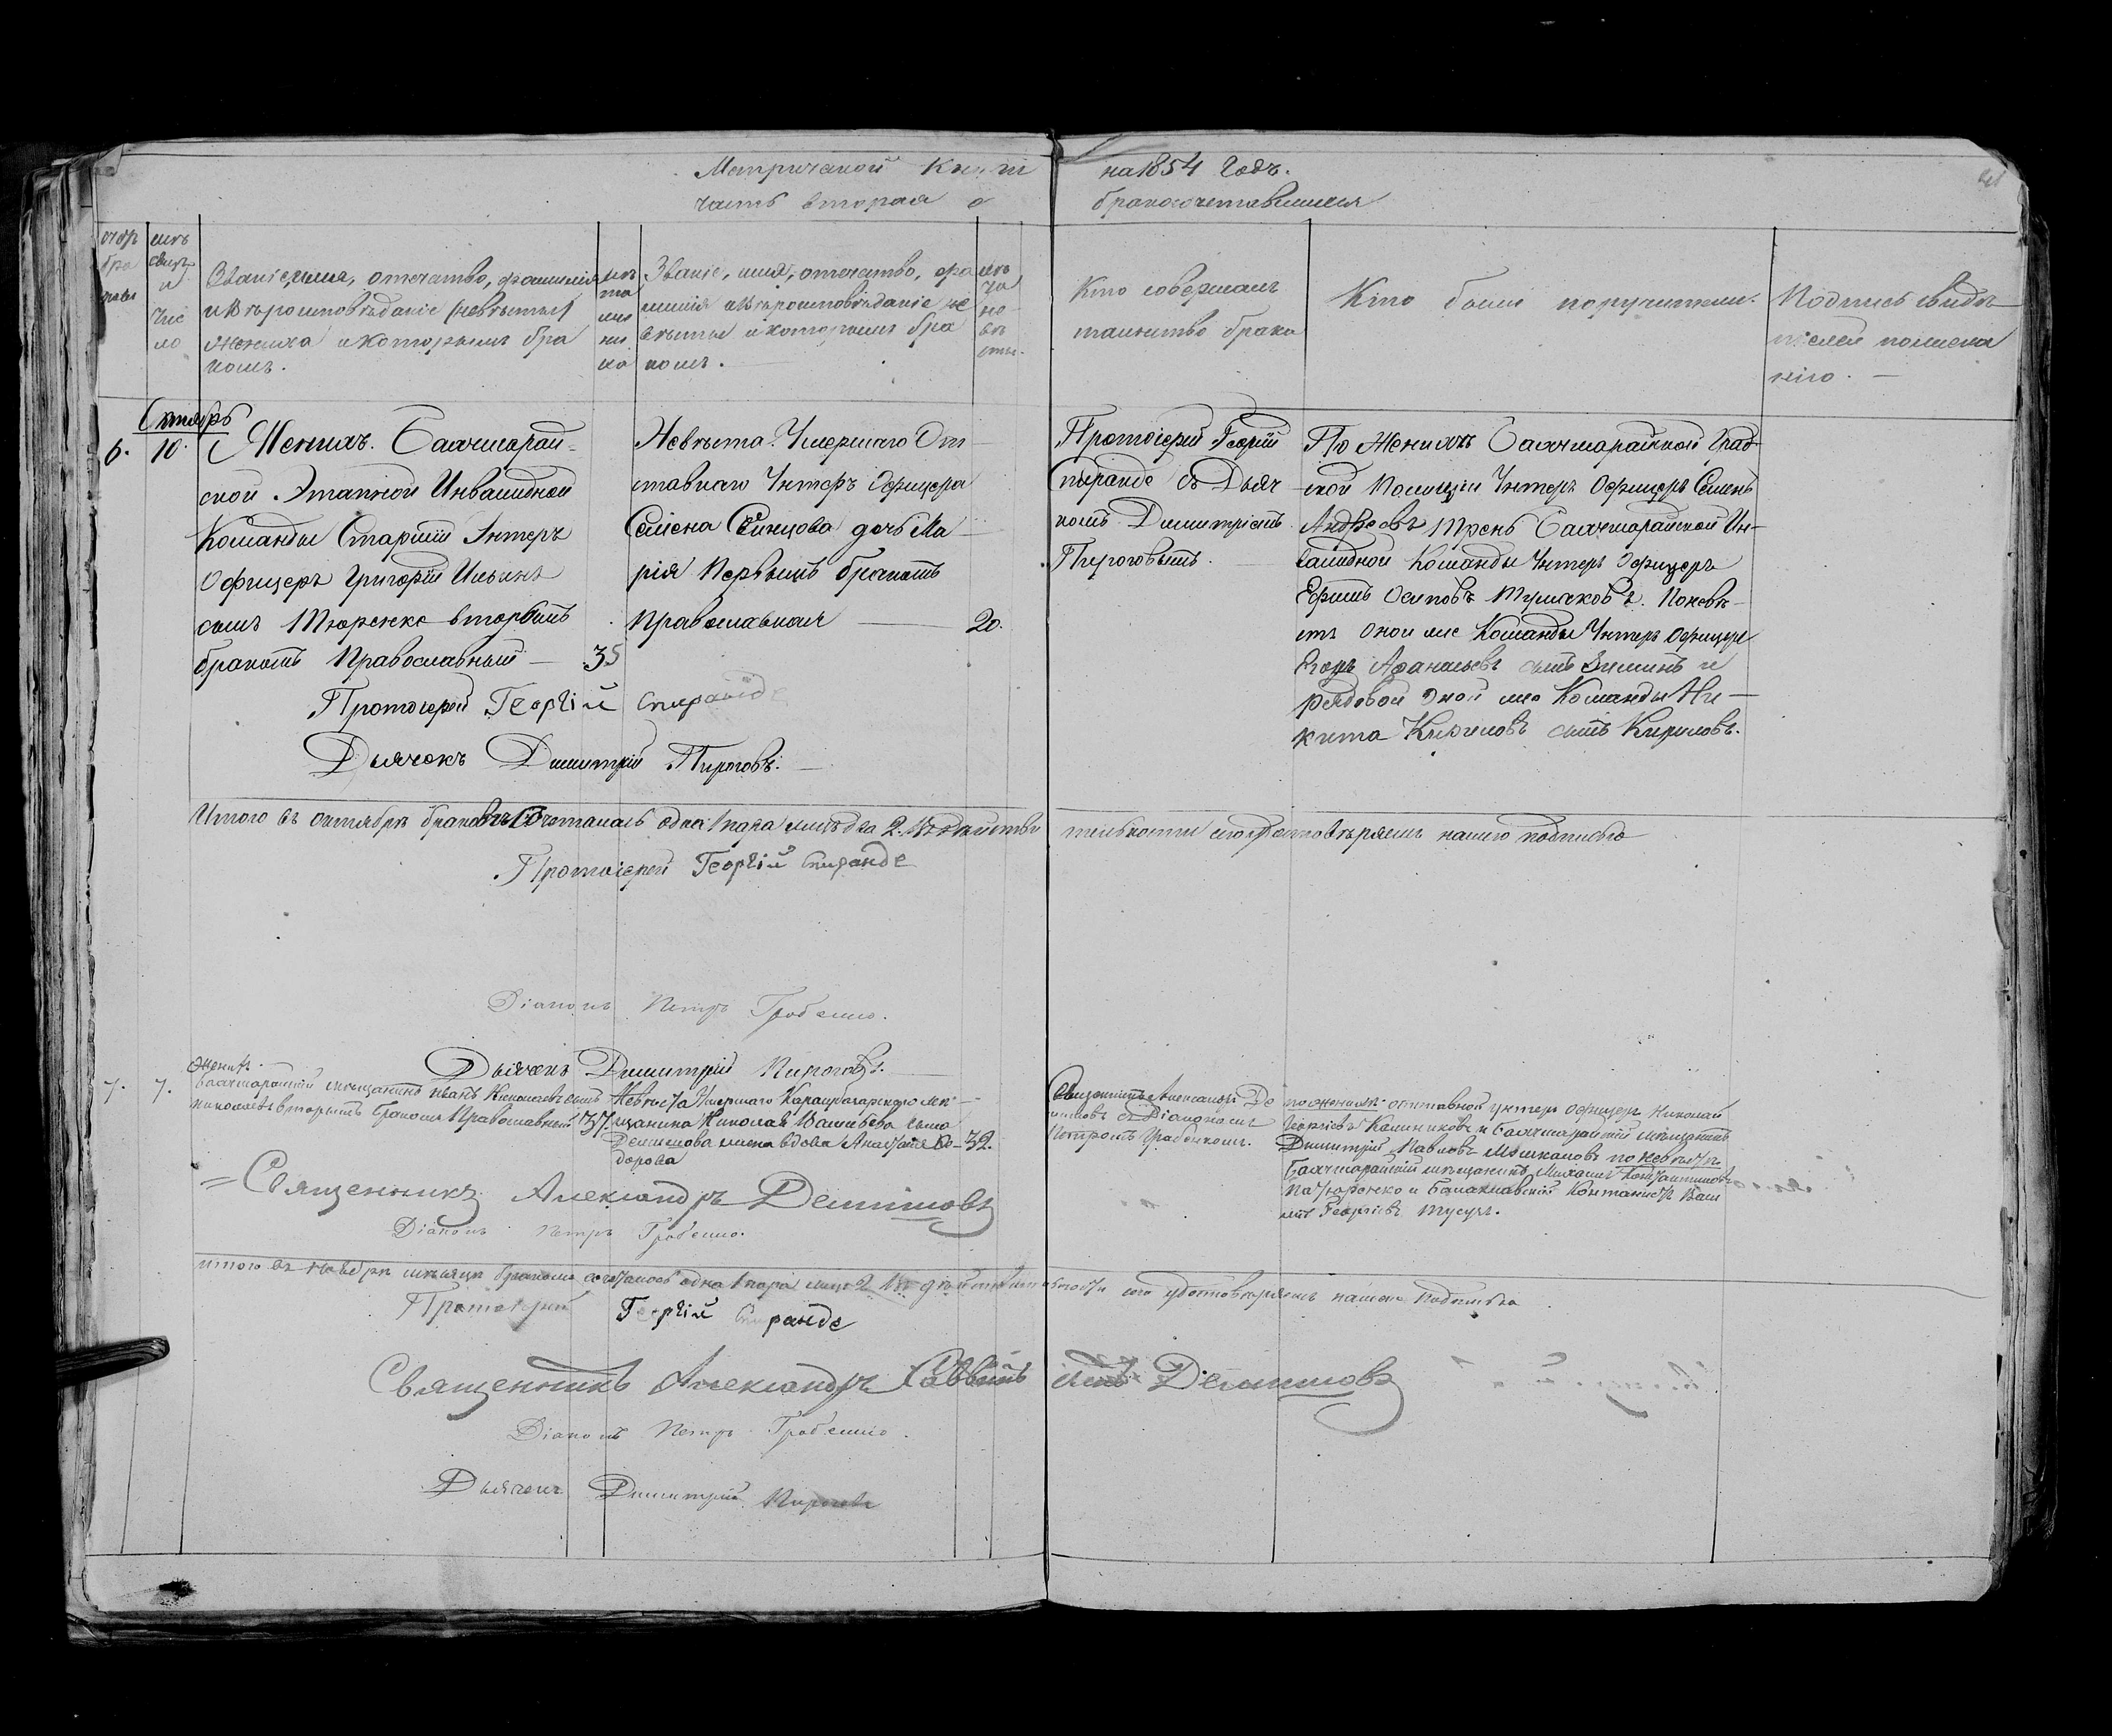 Метрической Книги на 1854 Годъ.
часть вторая о бракосочетавшихся
счетъ
бра
ковъ
мѣсяцъ
и
чис
ло
Званіе, имя, отечество, фамилія
и Вѣроисповѣданіе (невѣсты)
Жениха и которымъ бра
комъ.
лѣ
та
же
ни
ха
Званіе, имя, отечество, фа
милія и вѣроисповѣданіе не
вѣсты и которымъ бра
комъ.
лѣ
та
не-
вѣ
сты.
Кто совершалъ
таинство брака
Кто были поручители.
Подпись свидѣ
телей по желанію
Октябрь
6. 10. Женихъ. Бахчисарай-
ской Этапной Инвалидной
Команды Старшій Унтеръ
Офицеръ Григорій Ильинъ
сынъ Тюренко вторымъ
бракомъ Православный — 35
Невѣста. Умершаго От
ставнаго Унтеръ Офицера
Семена дочь Ма
рія Первымъ бракомъ
Православная — 20.
Протоіерей Георгій
Спиранде съ Дьяч
комъ Димитріемъ
Пироговымъ.
По Женихѣ Бахчисарайской Град-
ской Полиціи Унтеръ Офицеръ Семенъ
Андреевъ Бахчисарайской Ин-
валидной Команды Унтеръ Офицеръ
Ефимъ Осиповъ По невѣ-
стѣ Оной же Команды Унтеръ Офицеръ
Егоръ Афанасьевъ сынъ Зиминъ и
рядовой Оной же Команды Ни-
кита Кириловъ сынъ Кириловъ.
Протоіерей Георгій Спиранде
Дьячокъ Димитрій Пироговъ.
Итого въ октябрѣ бракомъ Сочеталась одна 1 пара лицъ два 2. Въ дѣйстви тельности сего удостовѣряемъ нашею подписью
Протоіерей Георгій Спиранде
Діаконъ Петръ Гробенко.
Дьячекъ Димитрій Пироговъ.
7. 7. Женихъ.
Бахчисарайскій мѣщанинъ Иванъ Николаевъ сынъ
Николаевъ вторымъ бракомъ Православный 37.
Невѣста Умершаго Карасубазарскаго мѣ-
щанина Николая Васильева сына
жена вдова Анастасія Ѳе- 32.
дорова
Священникъ Александръ Де
мишовъ съ Діакономъ
Петромъ Гробенкомъ.
по женихѣ: отставной унтеръ Офицеръ Николай
Георгіевъ Калиниковъ и Бахчисарайскій мѣщанинъ
Димитрій Павловъ по Невѣстѣ
Бахчисарайскій мѣщанинъ Михаилъ Константиновъ
и Балаклавскій Васи
лій Георгіевъ
Священникъ Александръ Демишовъ
Діаконъ Петръ Гробенко.
итого въ ноябрѣ мѣсяцѣ бракомъ сочеталось одна 1 пара лицъ 2 Въ дѣйствительности сего удостовѣряемъ нашею подписью
Протоіерей Георгій Спиранде
Священникъ Александръ Демишовъ
Діаконъ Петръ Гробенко.
Дьячокъ Димитрій Пироговъ